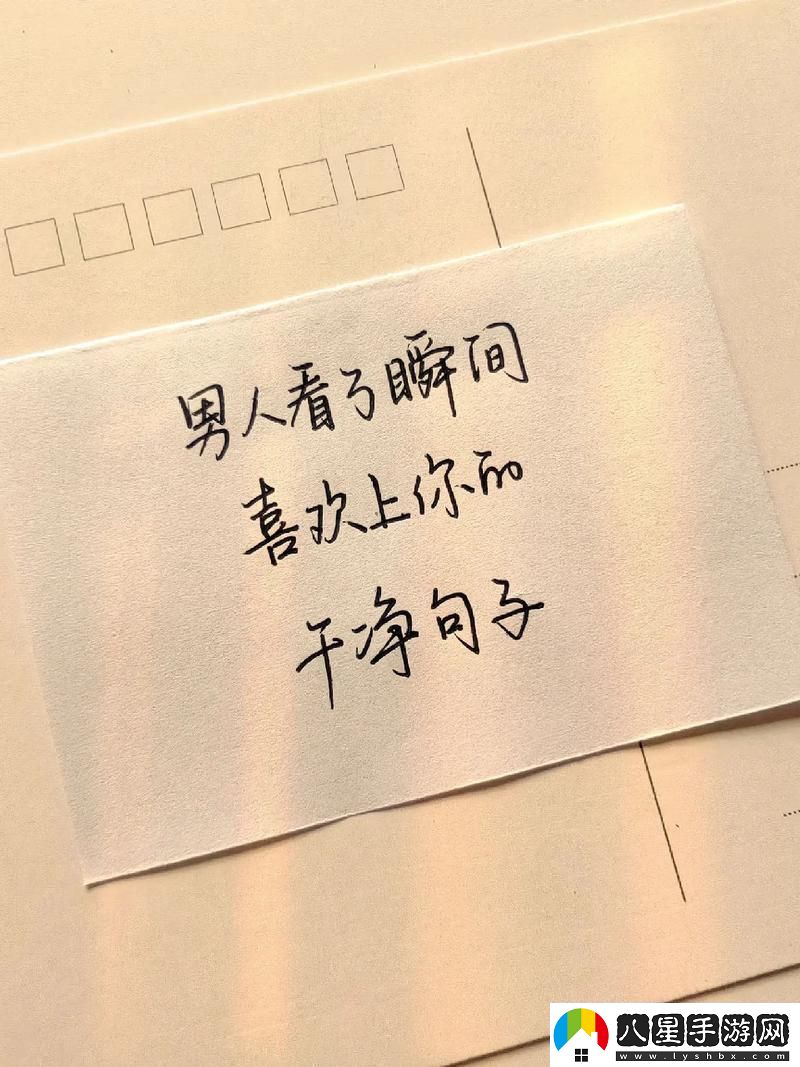 男人看了瞬间
喜欢上你的
干净句子
八星手游网
www.lyshbx.com